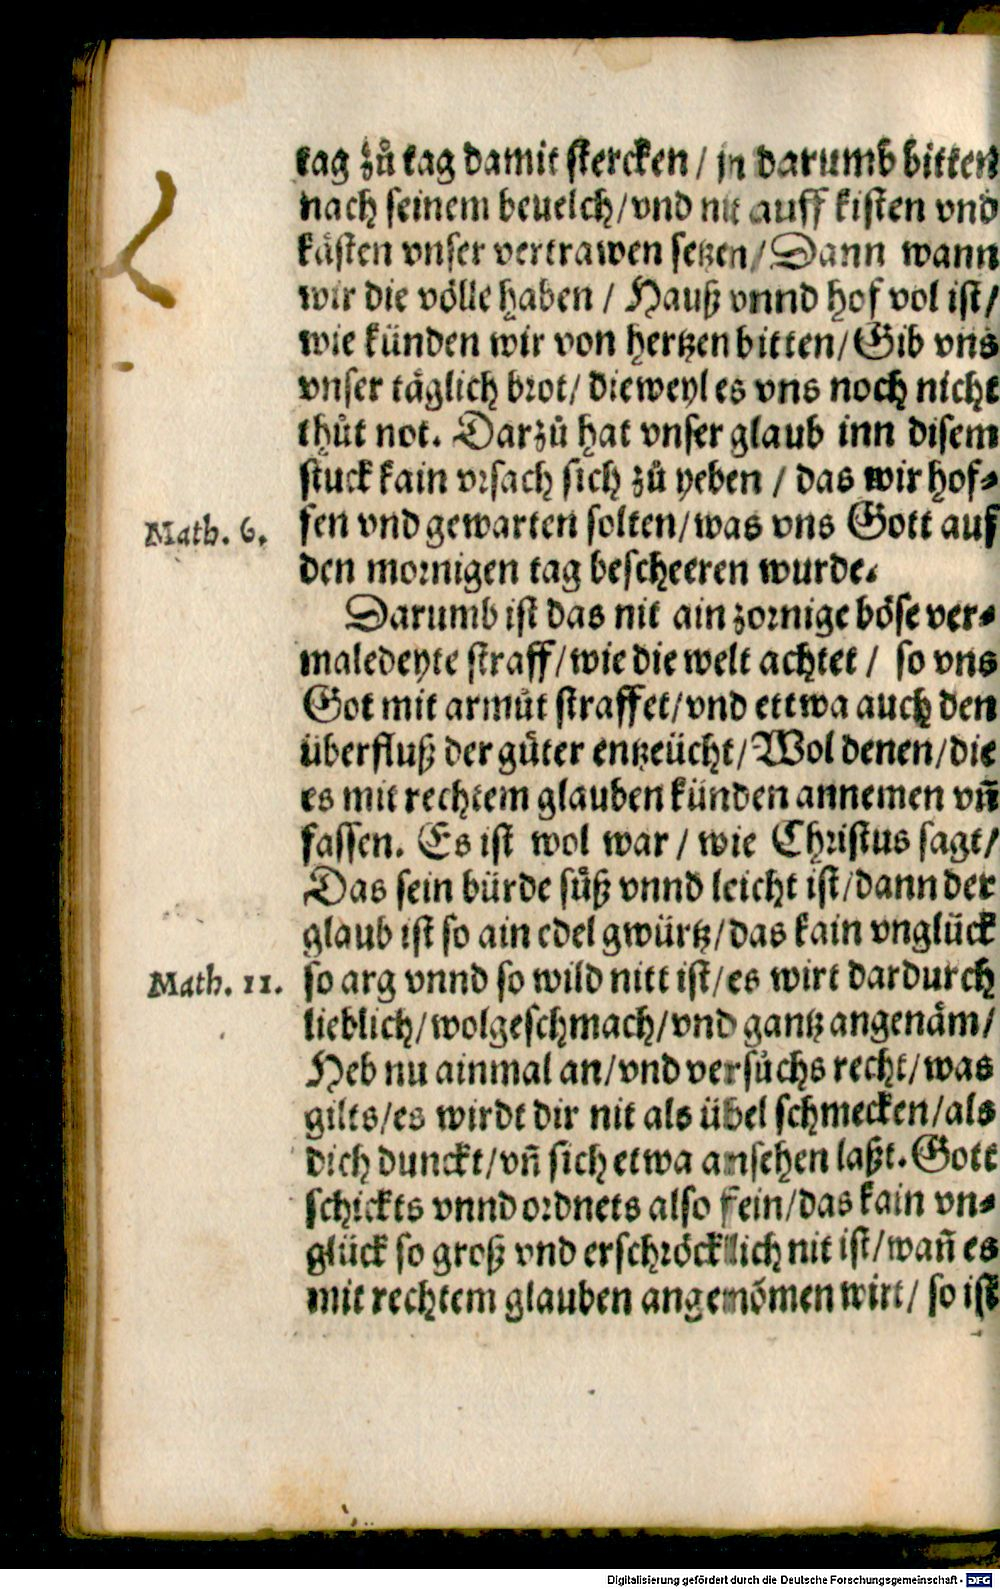 tag zů tag damit stercken / jn darumb bitten
nach seinem beuelch/vnd nit auff kisten vnd
kästen vnser vertrawen setzen/Dann wann
wir die völle haben / Hauß vnnd hof vol ist/
wie künden wir von hertzen bitten/Gib vns
vnser täglich brot/ dieweyl es vns noch nicht
thůt not. Darzů hat vnser glaub inn disem
stuck kain vrsach sich zů yeben / das wir hof⸗
Math. 6. fen vnd gewarten solten/was vns Gott auf
den mornigen tag bescheeren wurde.
Darumb ist das nit ain zornige böse ver⸗
maledeyte straff/wie die welt achtet / so vns
Got mit armůt straffet/vnd ettwa auch den
überfluß der gůter entzeücht/Wol denen/die
es mit rechtem glauben künden annemen vñ
fassen. Es ist wol war / wie Christus sagt/
Das sein bürde sůß vnnd leicht ist/dann der
glaub ist so ain edel gwürtz/das kain vnglück
Math. 11. so arg vnnd so wild nitt ist/es wirt dardurch
lieblich/wolgeschmach/vnd gantz angenäm/
Heb nu ainmal an/vnd versůchs recht/was
gilts/es wirdt dir nit als übel schmecken/als
dich dunckt/vñ sich etwa ansehen laßt. Gott
schickts vnnd ordnets also fein/das kain vn⸗
glück so groß vnd erschröcklich nit ist/wañ es
mit rechtem glauben angenömen wirt/ so ist
Digitalisierung gefördert durch die Deutsche Forschungsgemeinschaft - DFG